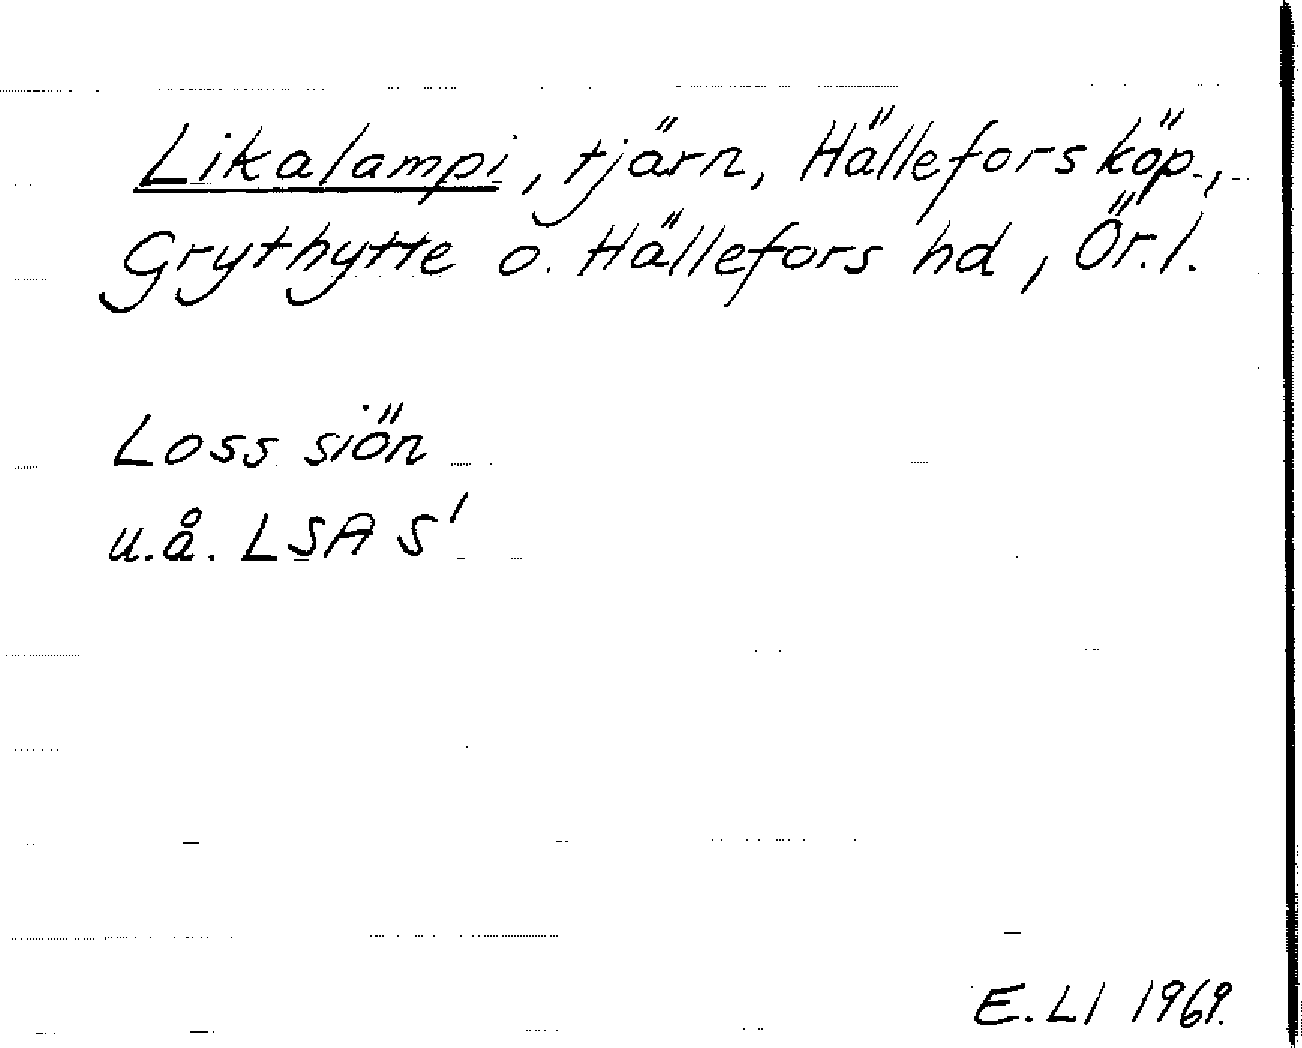 Likalampi, tjärn, Hällefors köp.,
Grythytte o. Hällefors hd, Ör. l.
Loss siön
u.å. LSA S'
E. LI 1969.